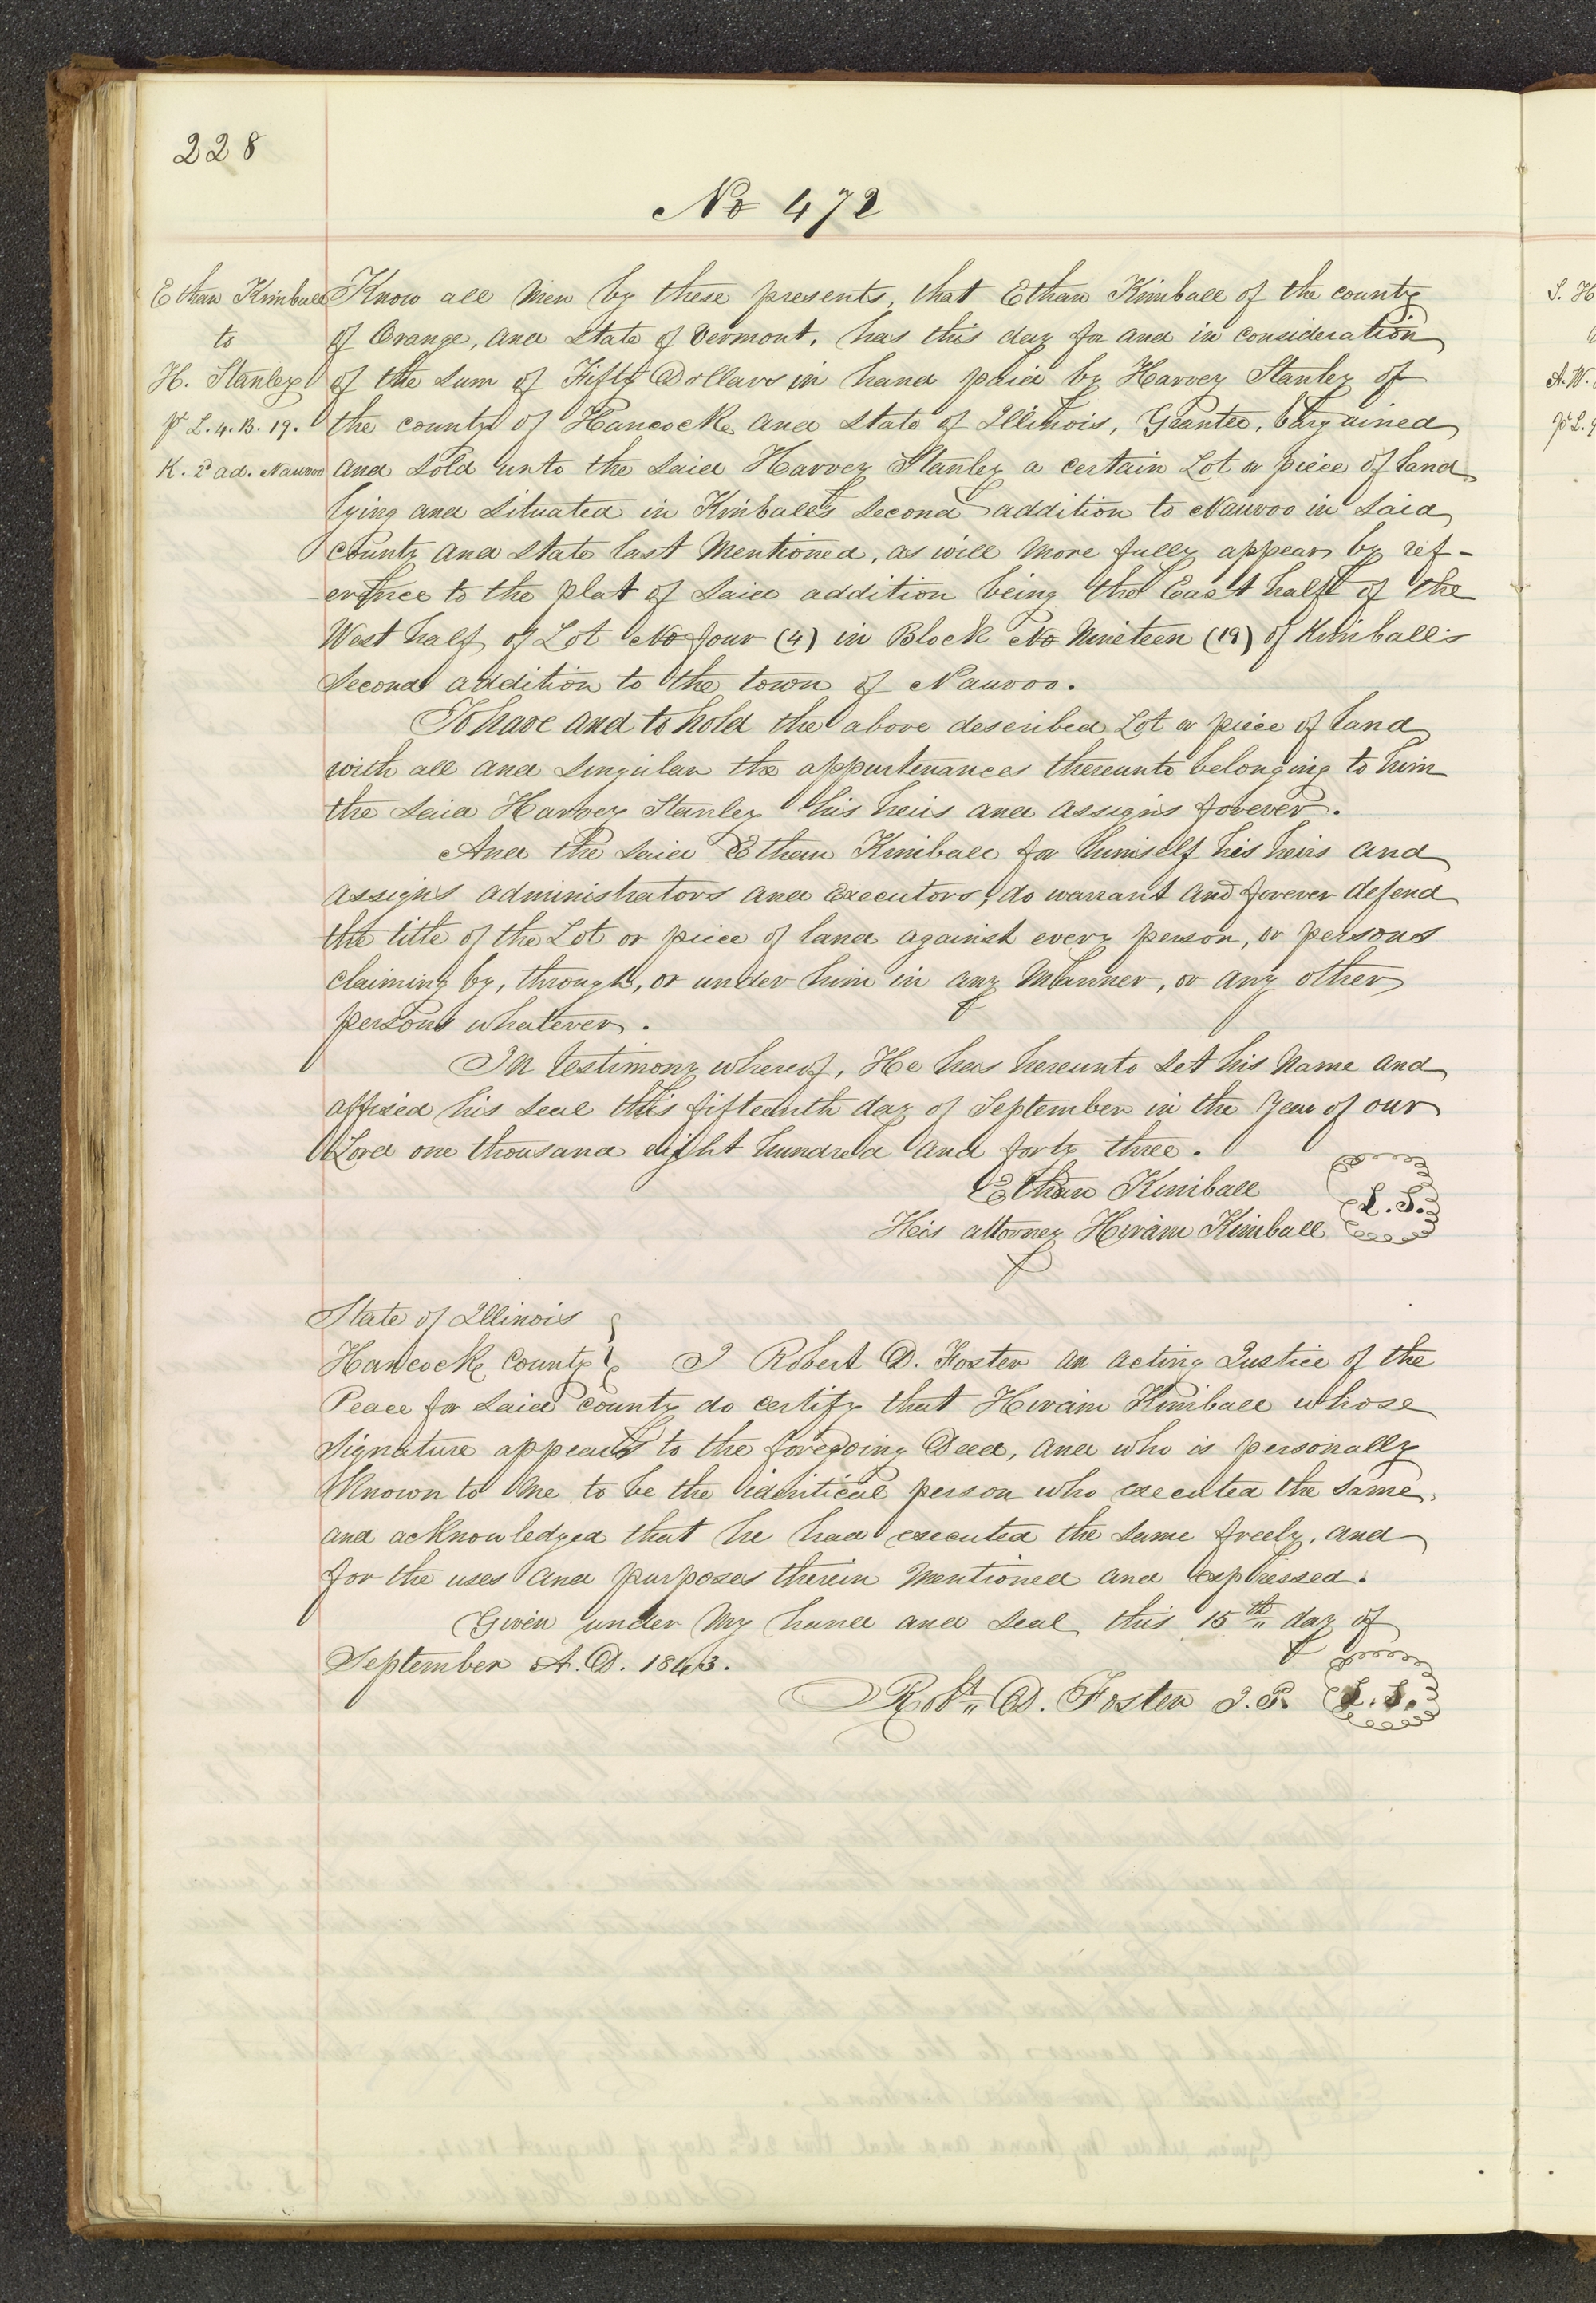 228
No 472
Ethan Kimball
to
H. Stanley
pt L. 4. B. 19.
K. 2d ad. Nauvoo
Know all Men by these presents, that Ethan Kimball of the county
of Orange, and State of Vermont, has this day for and in consideration
of the sum of Fifty Dollars in hand paid by Harvey Stanley of
the county of Hancock and State of Illinois, Grantee, bargained
and sold unto the said Harvey Stanley a certain Lot or piece of land
lying and situated in Kimball's Second addition to Nauvoo in said
county and State last mentioned, as will more fully appear by ref-
erence to the plat of said addition being the East half of the
West half of Lot No four (4) in Block No Nineteen (19) of Kimball's
Second addition to the town of Nauvoo.
To have and to hold the above described Lot or piece of land
with all and singular the appurtenances thereunto belonging to him
the said Harvey Stanley his heirs and assigns forever.
And the said Ethan Kimball for himself his heirs and
assigns administrators and Executors, do warrant and forever defend
the title of the Lot or piece of land against every person, or persons
claiming by, through, or under him in any manner, or any other
persons whatever.
In testimony whereof, He has hereunto set his name and
affixed his seal this fifteenth day of September in the Year of our
Lord one thousand eight hundred and forty three.
Ethan Kimball
His attorney Hiram Kimball L. S.
State of Illinois
Hancock County I Robert D. Foster an acting Justice of the
Peace for said county do certify that Hiram Kimball whose
signature appears to the foregoing Deed, and who is personally
Known to me to be the identical person who executed the same,
and acknowledged that he had executed the same freely, and
for the uses and purposes therein mentioned and expressed.
Given under my hand and seal this 15th day of
September A. D. 1843.
Robt. D. Foster J. P. L. S.
S. H
A. W.